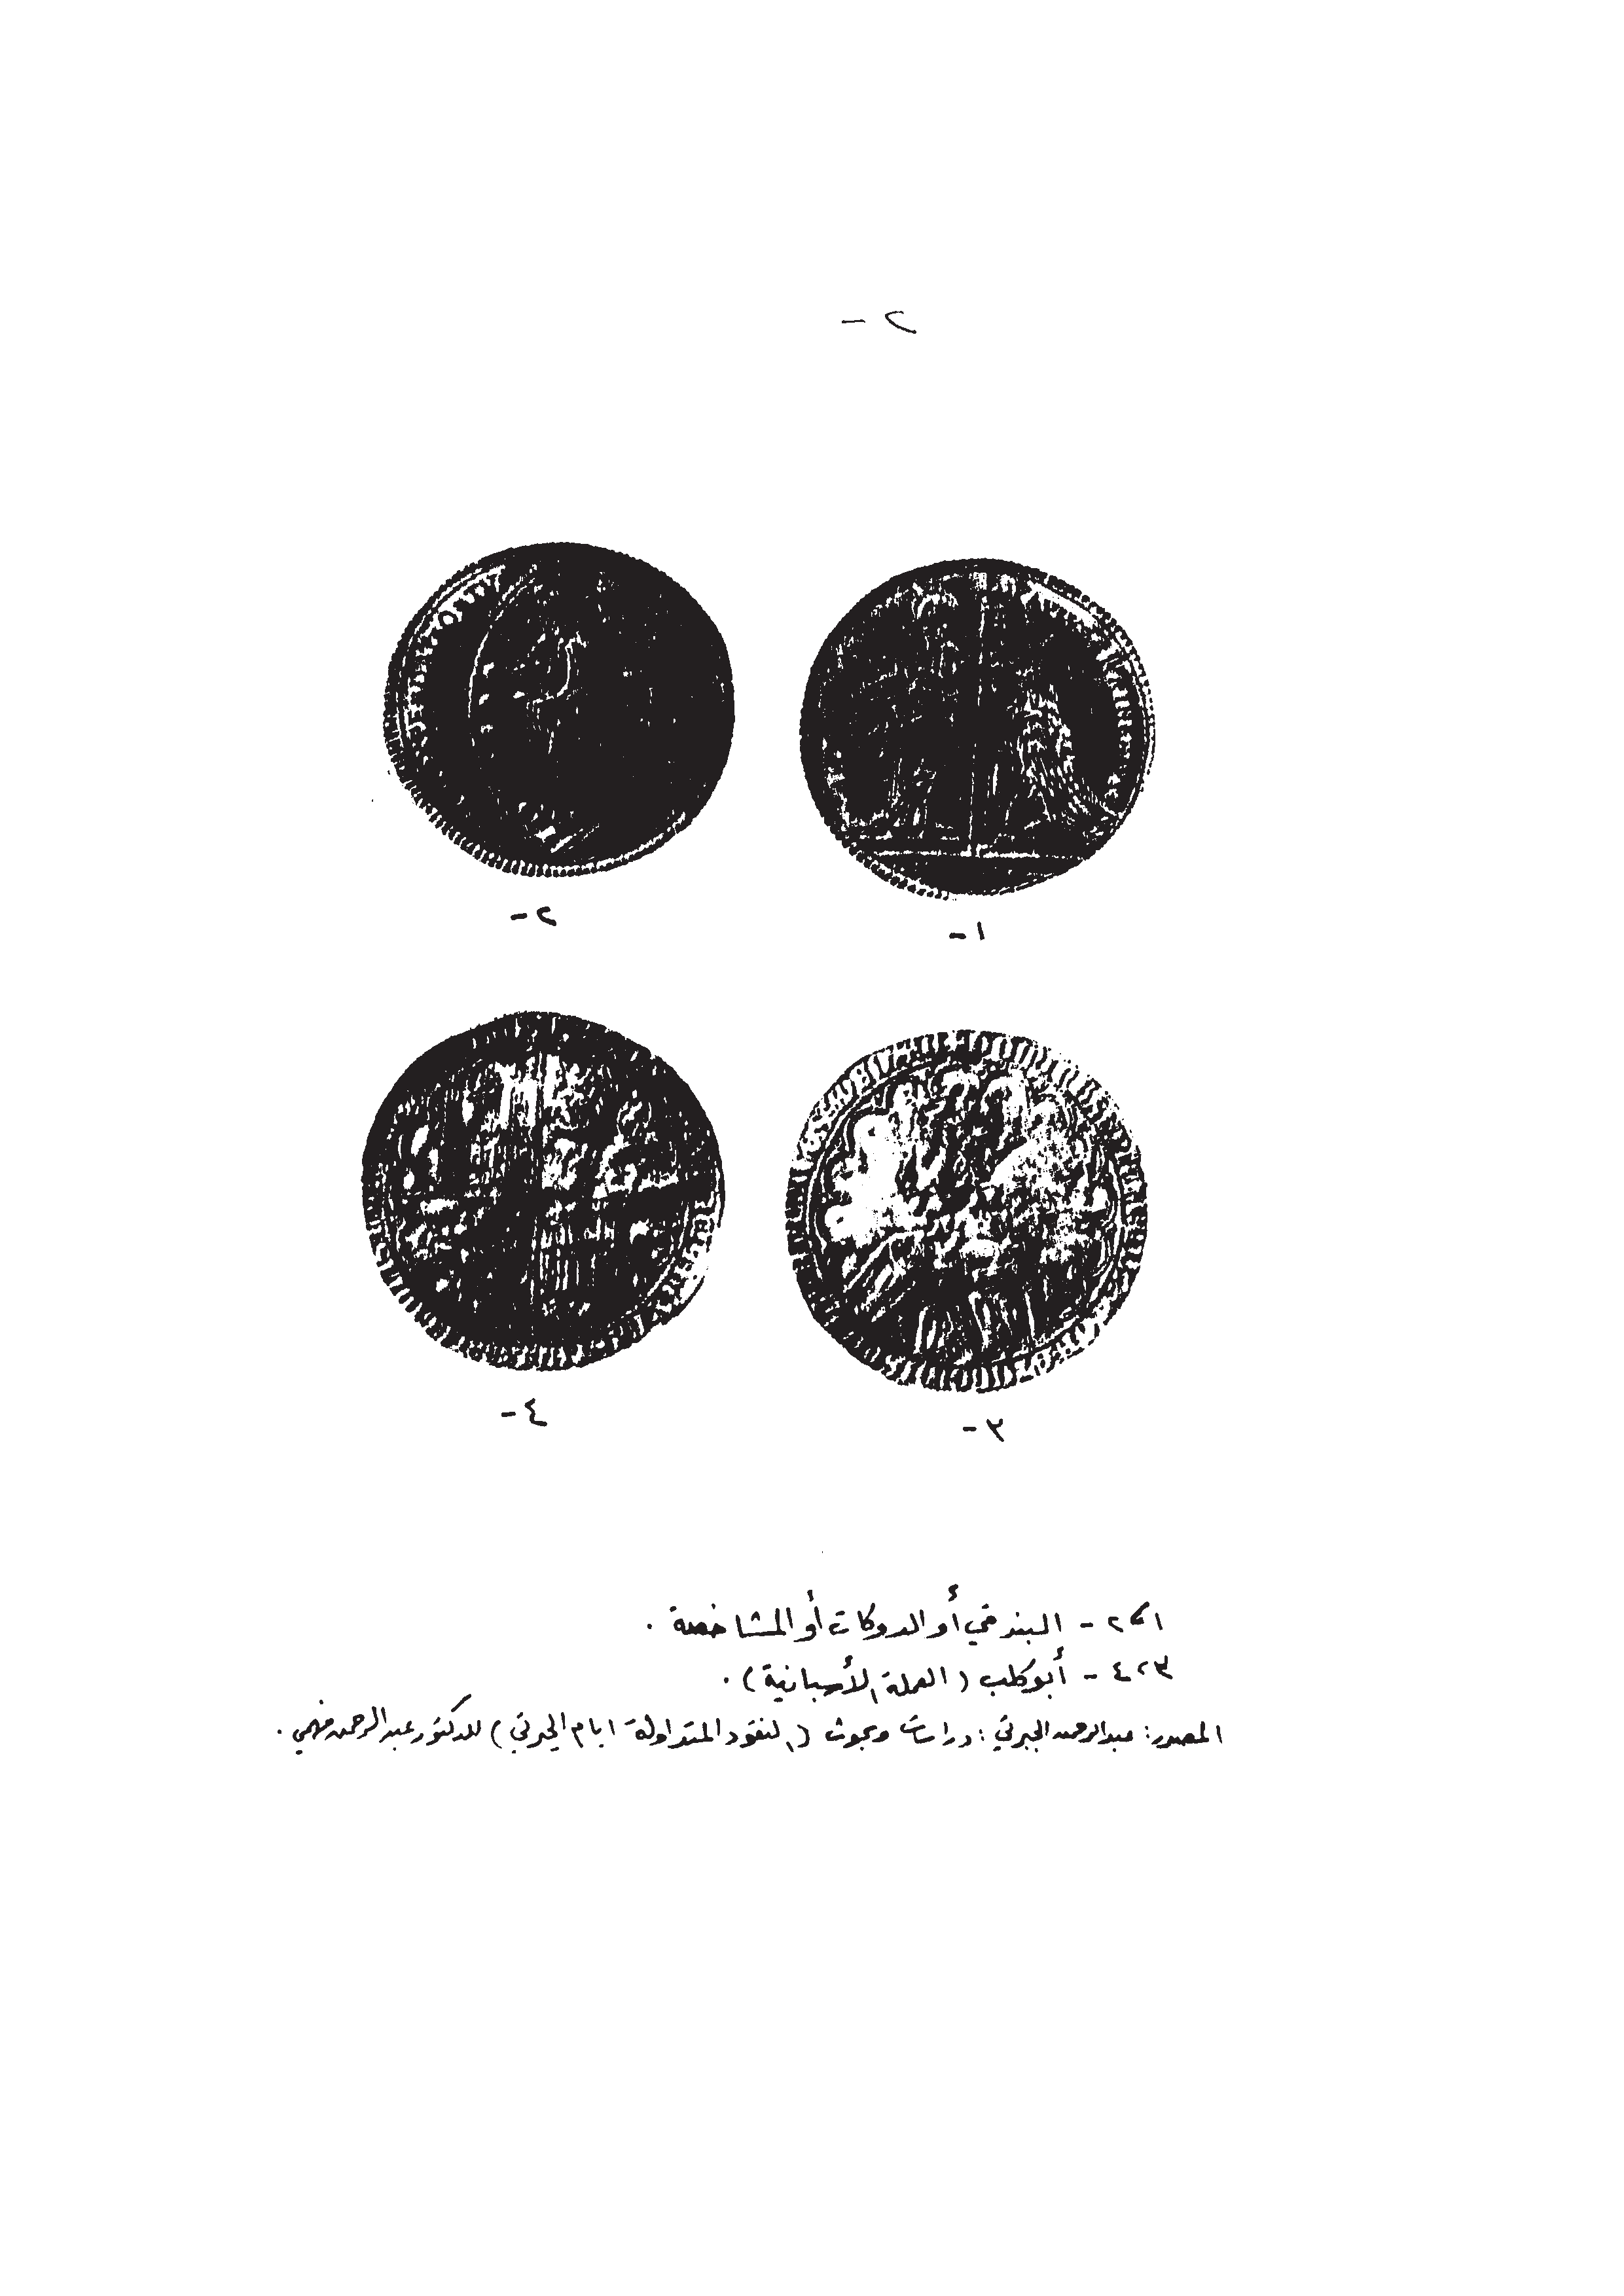 ٢ -
١ -
٢ -
٣ -
٤ -
١، ٢ - البندقي أو الدوكات أو المشاخصة .
٣، ٤ - أبوكلب ( العملة الأسبانية ) .
المصدر: عبدالرحمن الجبرتي : دراسات وبحوث ( النقود المتداولة ايام الجبرتي ) للدكتور عبدالرحمن فهمي .